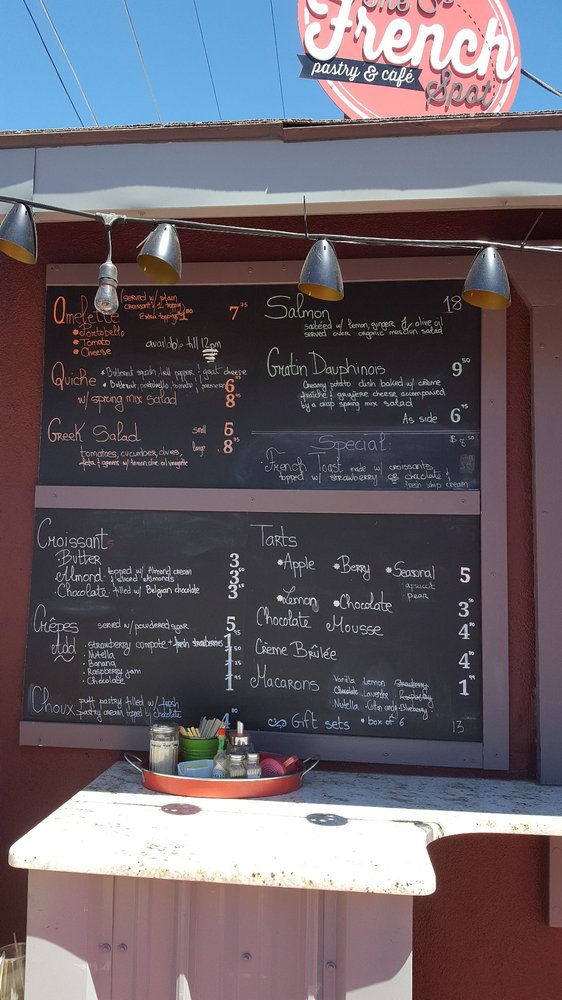 The
French
pastry & café
Spot
Omelette served w/ plain
croissant & 1 topping
Extra topping 1 80
7 75
Portobello
Tomato
Cheese
available till 12pm
Quiche Butternut squash, bell pepper & goat cheese
Butternut, portobello, tomato & parmesan
6
w/ spring mix salad 8
Greek Salad small 5
large 8
tomatoes, cucumbers, olives,
feta & greens w/ lemon olive oil vinaigrette
Salmon 18
sauteed w/ lemon, ginger & olive oil
served over organic mesclun salad
Gratin Dauphinois 9 50
Creamy potato dish baked w/ crème
fraîche & gruyère cheese accompanied
by a crisp spring mix salad
As side 6
Special:
French Toast made w/ croissants
topped w/ strawberry or chocolate &
fresh whip cream
Croissants
Butter 3
Almond topped w/ Almond cream
& sliced Almonds 3
Chocolate filled w/ Belgian chocolate 3
Crêpes served w/ powdered sugar 5
Add strawberry compote & fresh strawberries 1
Nutella 1
Banana 1
Raspberry jam 1
Chocolate 1
Choux puff pastry filled w/ fresh
pastry cream topped w/ chocolate 4 80
Tarts
Apple Berry Seasonal 5
apricot
pear
Lemon Chocolate
Chocolate Mousse 3 50
4 80
Crème Brûlée 4 80
Macarons Vanilla Lemon Strawberry 1
Chocolate Lavender Raspberry
Nutella Cotton candy Blueberry
Gift sets box of 6 13